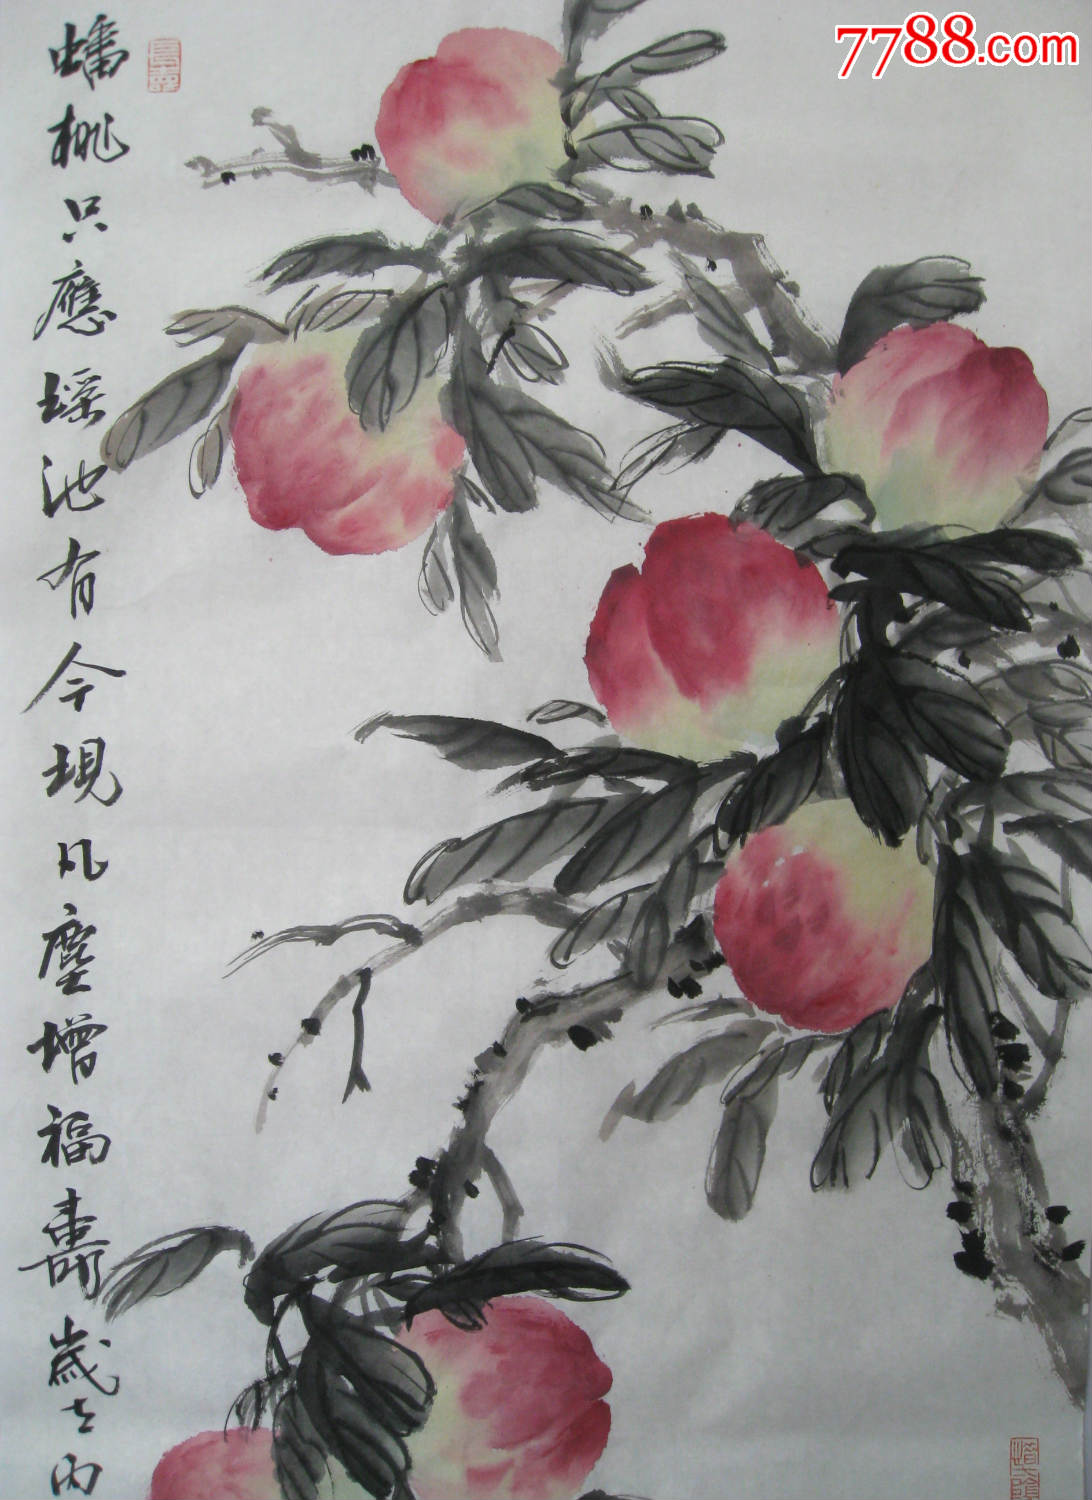 7788.com
蟠桃只應瑶池有今現凡塵增福壽歲在丙